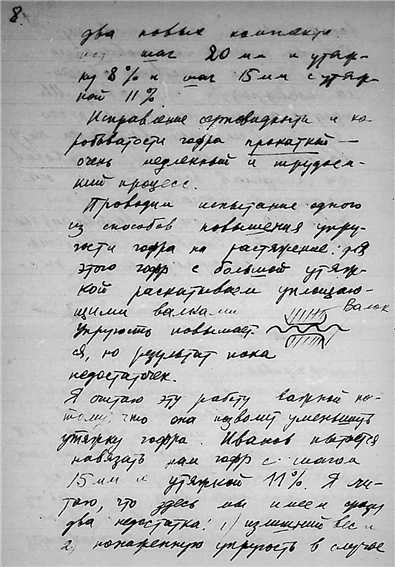 8.
два новых комплекта
шаг 20 мм и утяж-
ку 8% и шаг 15 мм с утяж-
кой 11%.
Исправление серповидности и ко-
робоватости гофра прокаткой —
очень медленный и трудоем-
кий процесс.
Проводим испытание одного
из способов повышения упру-
гости гофра на растяжение: для
этого гофр с большой утяж-
кой раскатываем уплощаю-
щими валками. Валок
Упругость повышает-
ся, но результат пока
недостаточен.
Я считаю эту работу важной по-
тому, что она позволит уменьшить
утяжку гофра. Иванов пытается
навязать нам гофр с шагом
15 мм и утяжкой 11%. Я счи-
таю, что здесь мы имеем сразу
два недостатка: 1) излишний вес и
2) пониженную упругость в случае